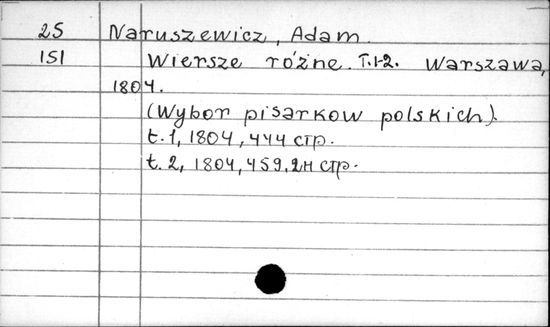 25 Naruszewicz, Adam.
151 Wiersze różne. T.1-2. Warszawa,
1804.
(Wybor pisarkow polskich).
t.1, 1804, 444 стр.
t.2, 1804, 459, 2н стр.